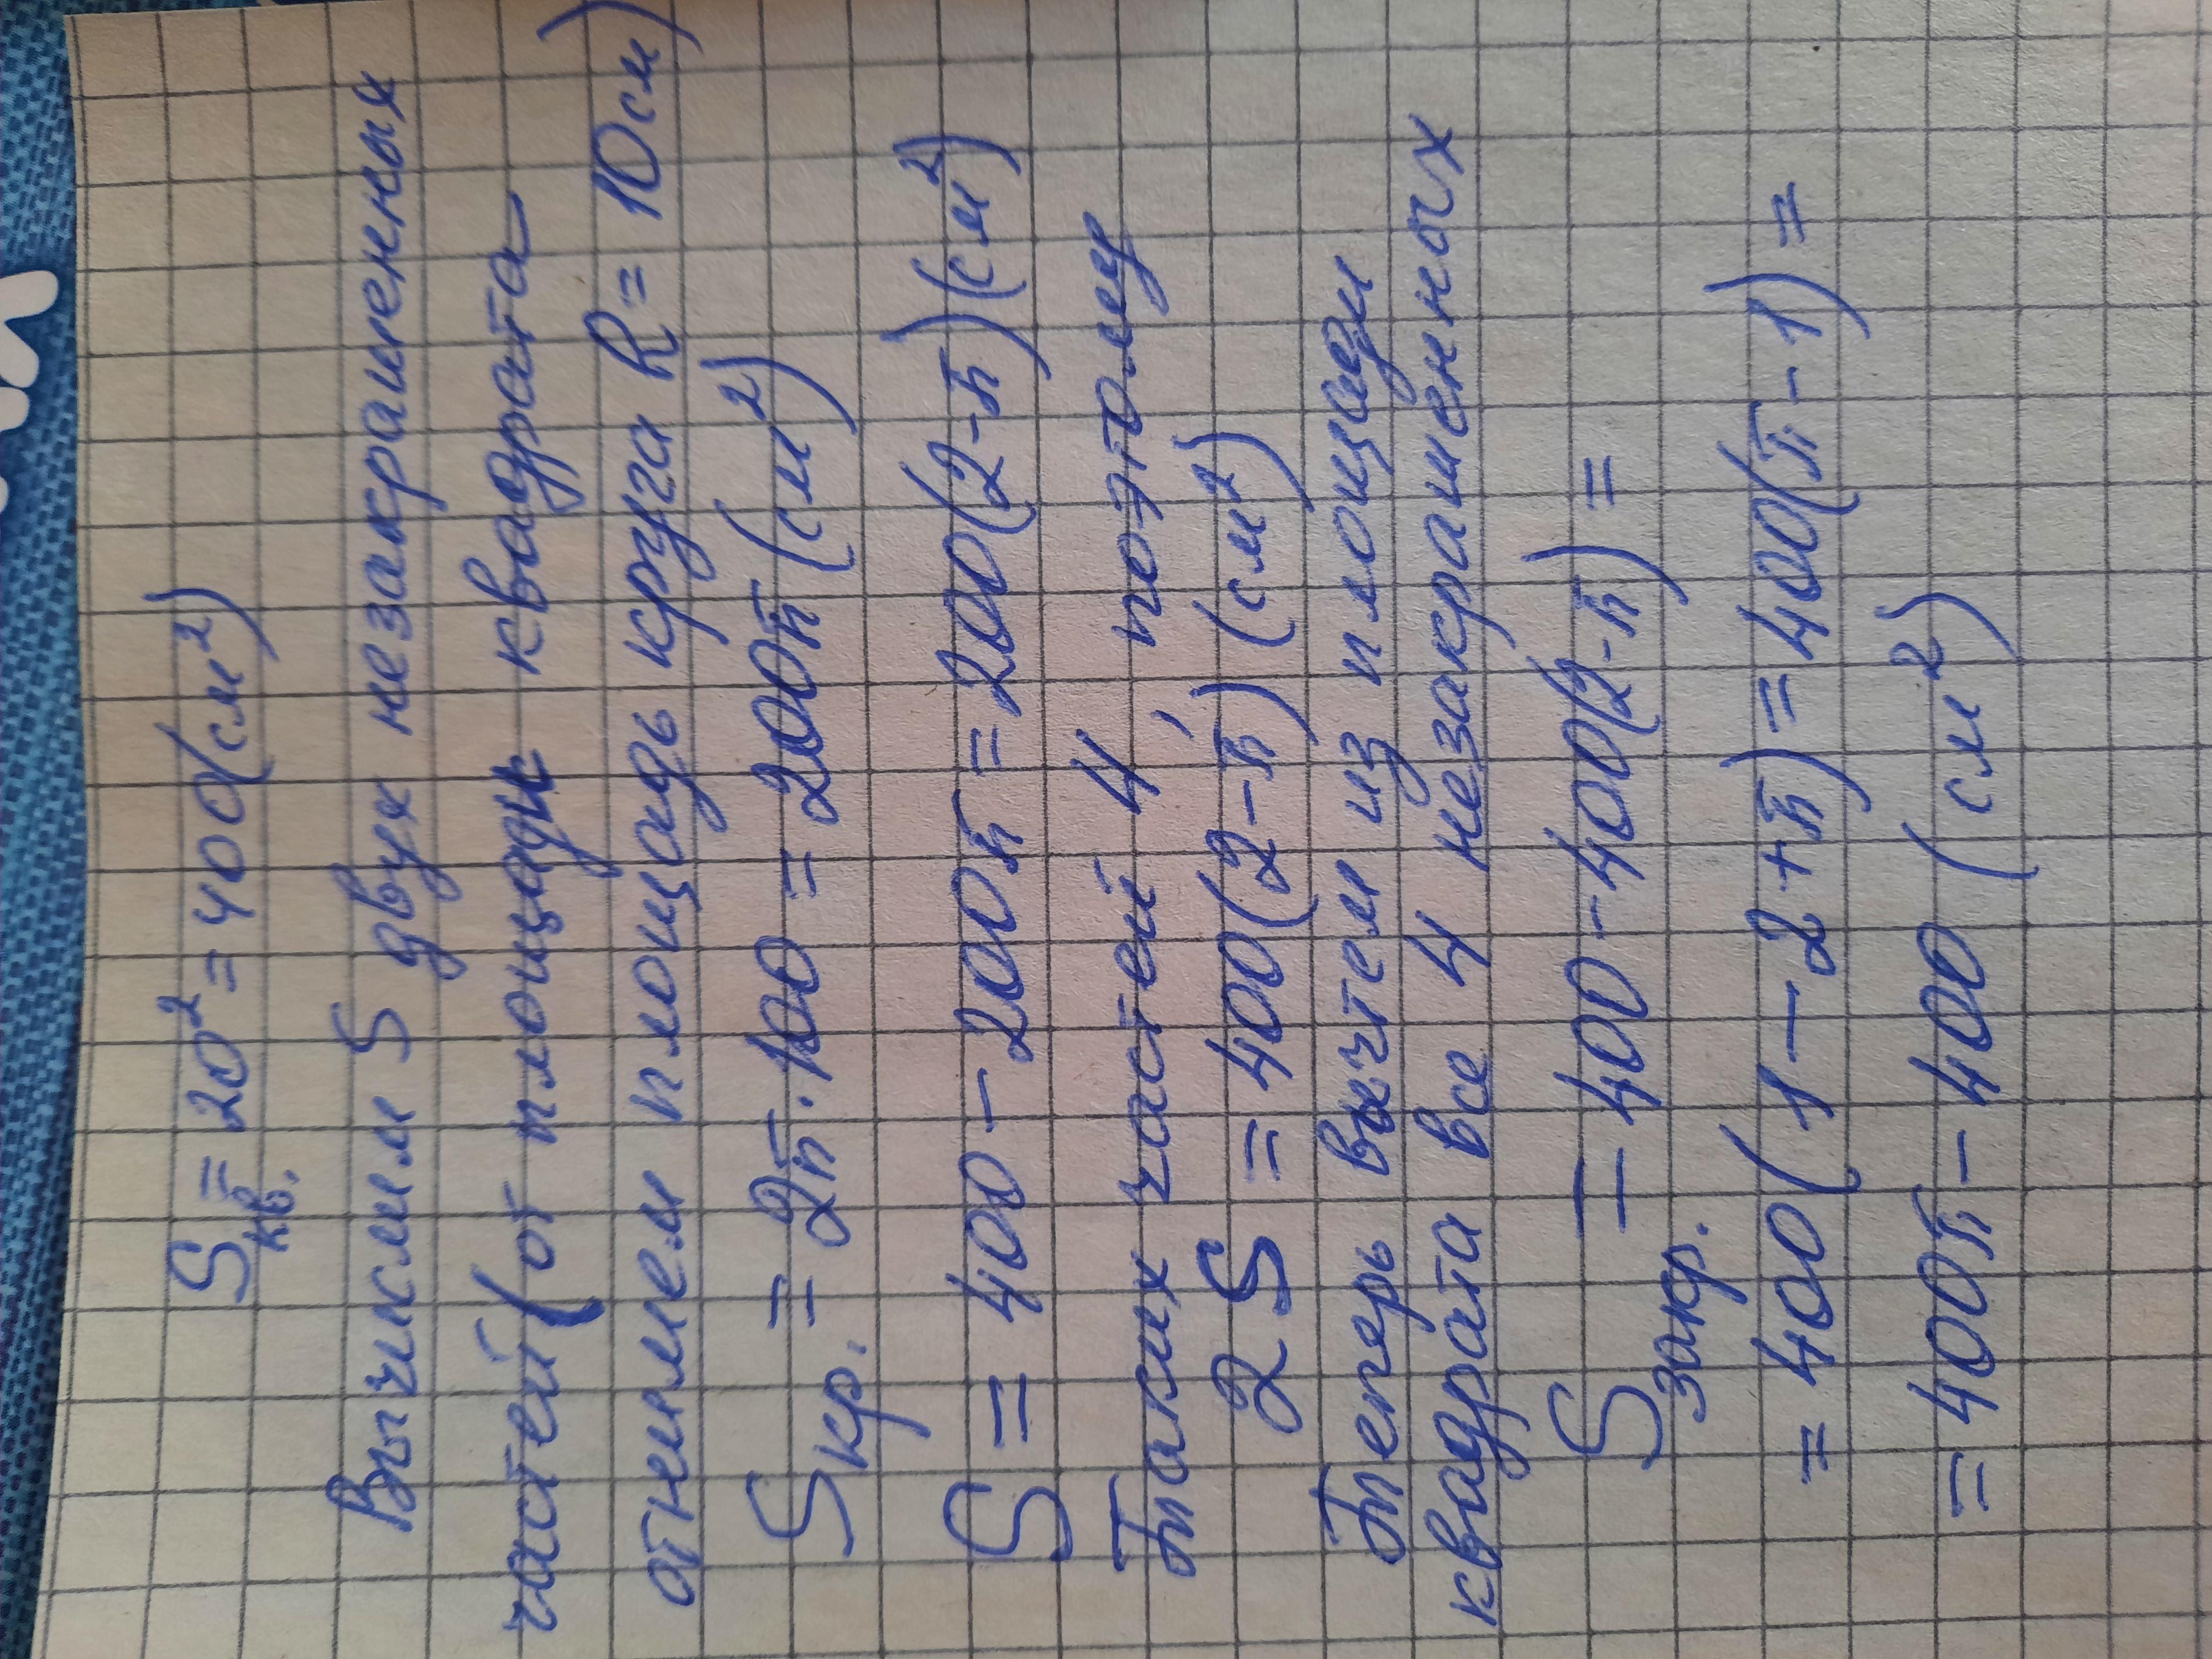 Sкв. = 20² = 400(см²)
Вычислим S двух незакрашенных
частей (от площади квадрата
отнимем площадь круга R = 10см)
Sкр. = 2π·100 = 200π (см²)
S = 400 - 200π = 200(2-π)(см²)
Таких частей 4, поэтому
2S = 400(2-π) (см²)
Теперь вычтем из площади
квадрата все 4 незакрашенных
Sзакр. = 400 - 400(2-π) =
= 400(1-2+π) = 400(π-1) =
= 400π - 400 (см²)